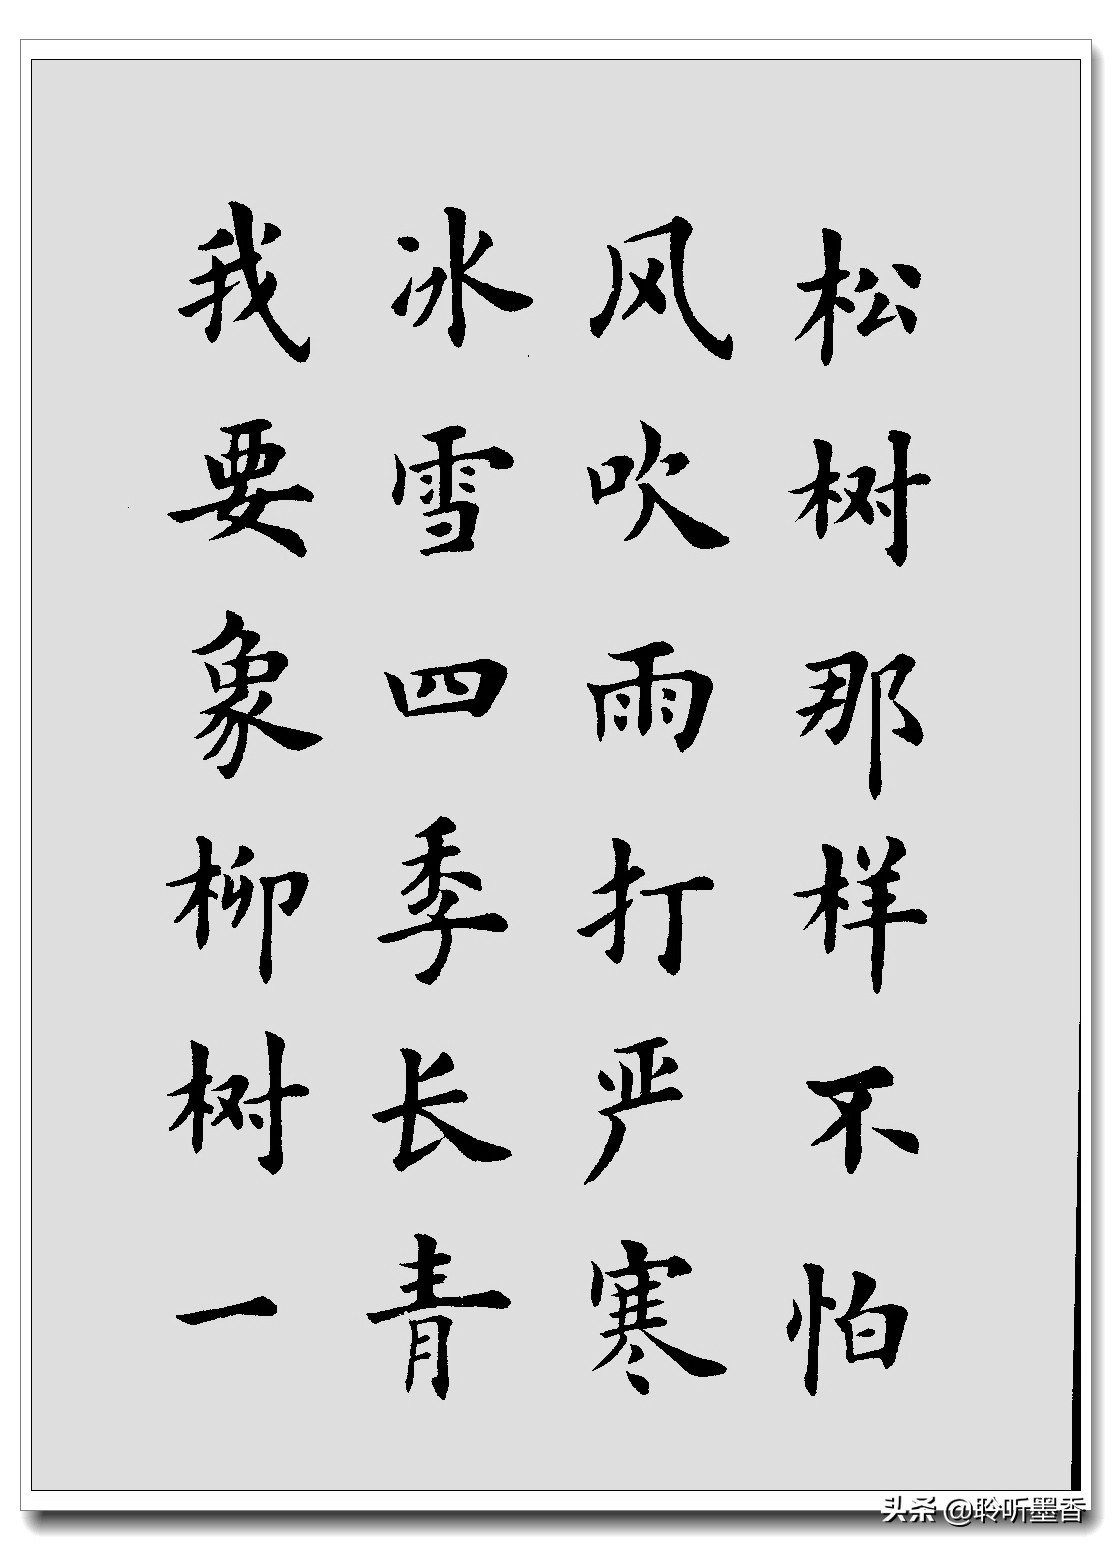 松树那样不怕
风吹雨打严寒
冰雪四季长青
我要象柳树一
头条 @聆听墨香